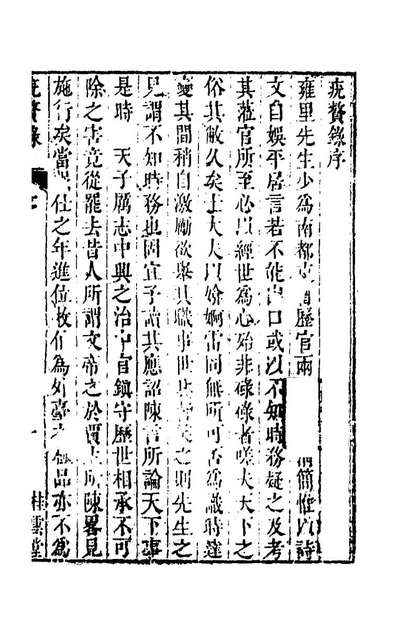 疣贅錄序
雍里先生少爲南都 歷官兩 簡惟以詩
文自娛平居言若不能出口或以不知時務疑之及考
其蒞官所至必以經世爲心始非碌碌者嗟夫天下之
俗其敝久矣士大夫以媕婀雷同無所可否爲識時達
變其間稍自激勵欲舉其職事世共訾笑之則先生之
見謂不知時務也固宜予讀其應詔陳言所論天下事
是時 天子厲志中興之治中官鎮守歷世相承不可
除之害竟從罷去昔人所謂文帝之於賈 所陳畧見
施行矣當 仕之年進位牧伯爲外臺 品亦不爲
疣贅錄
桂雲堂